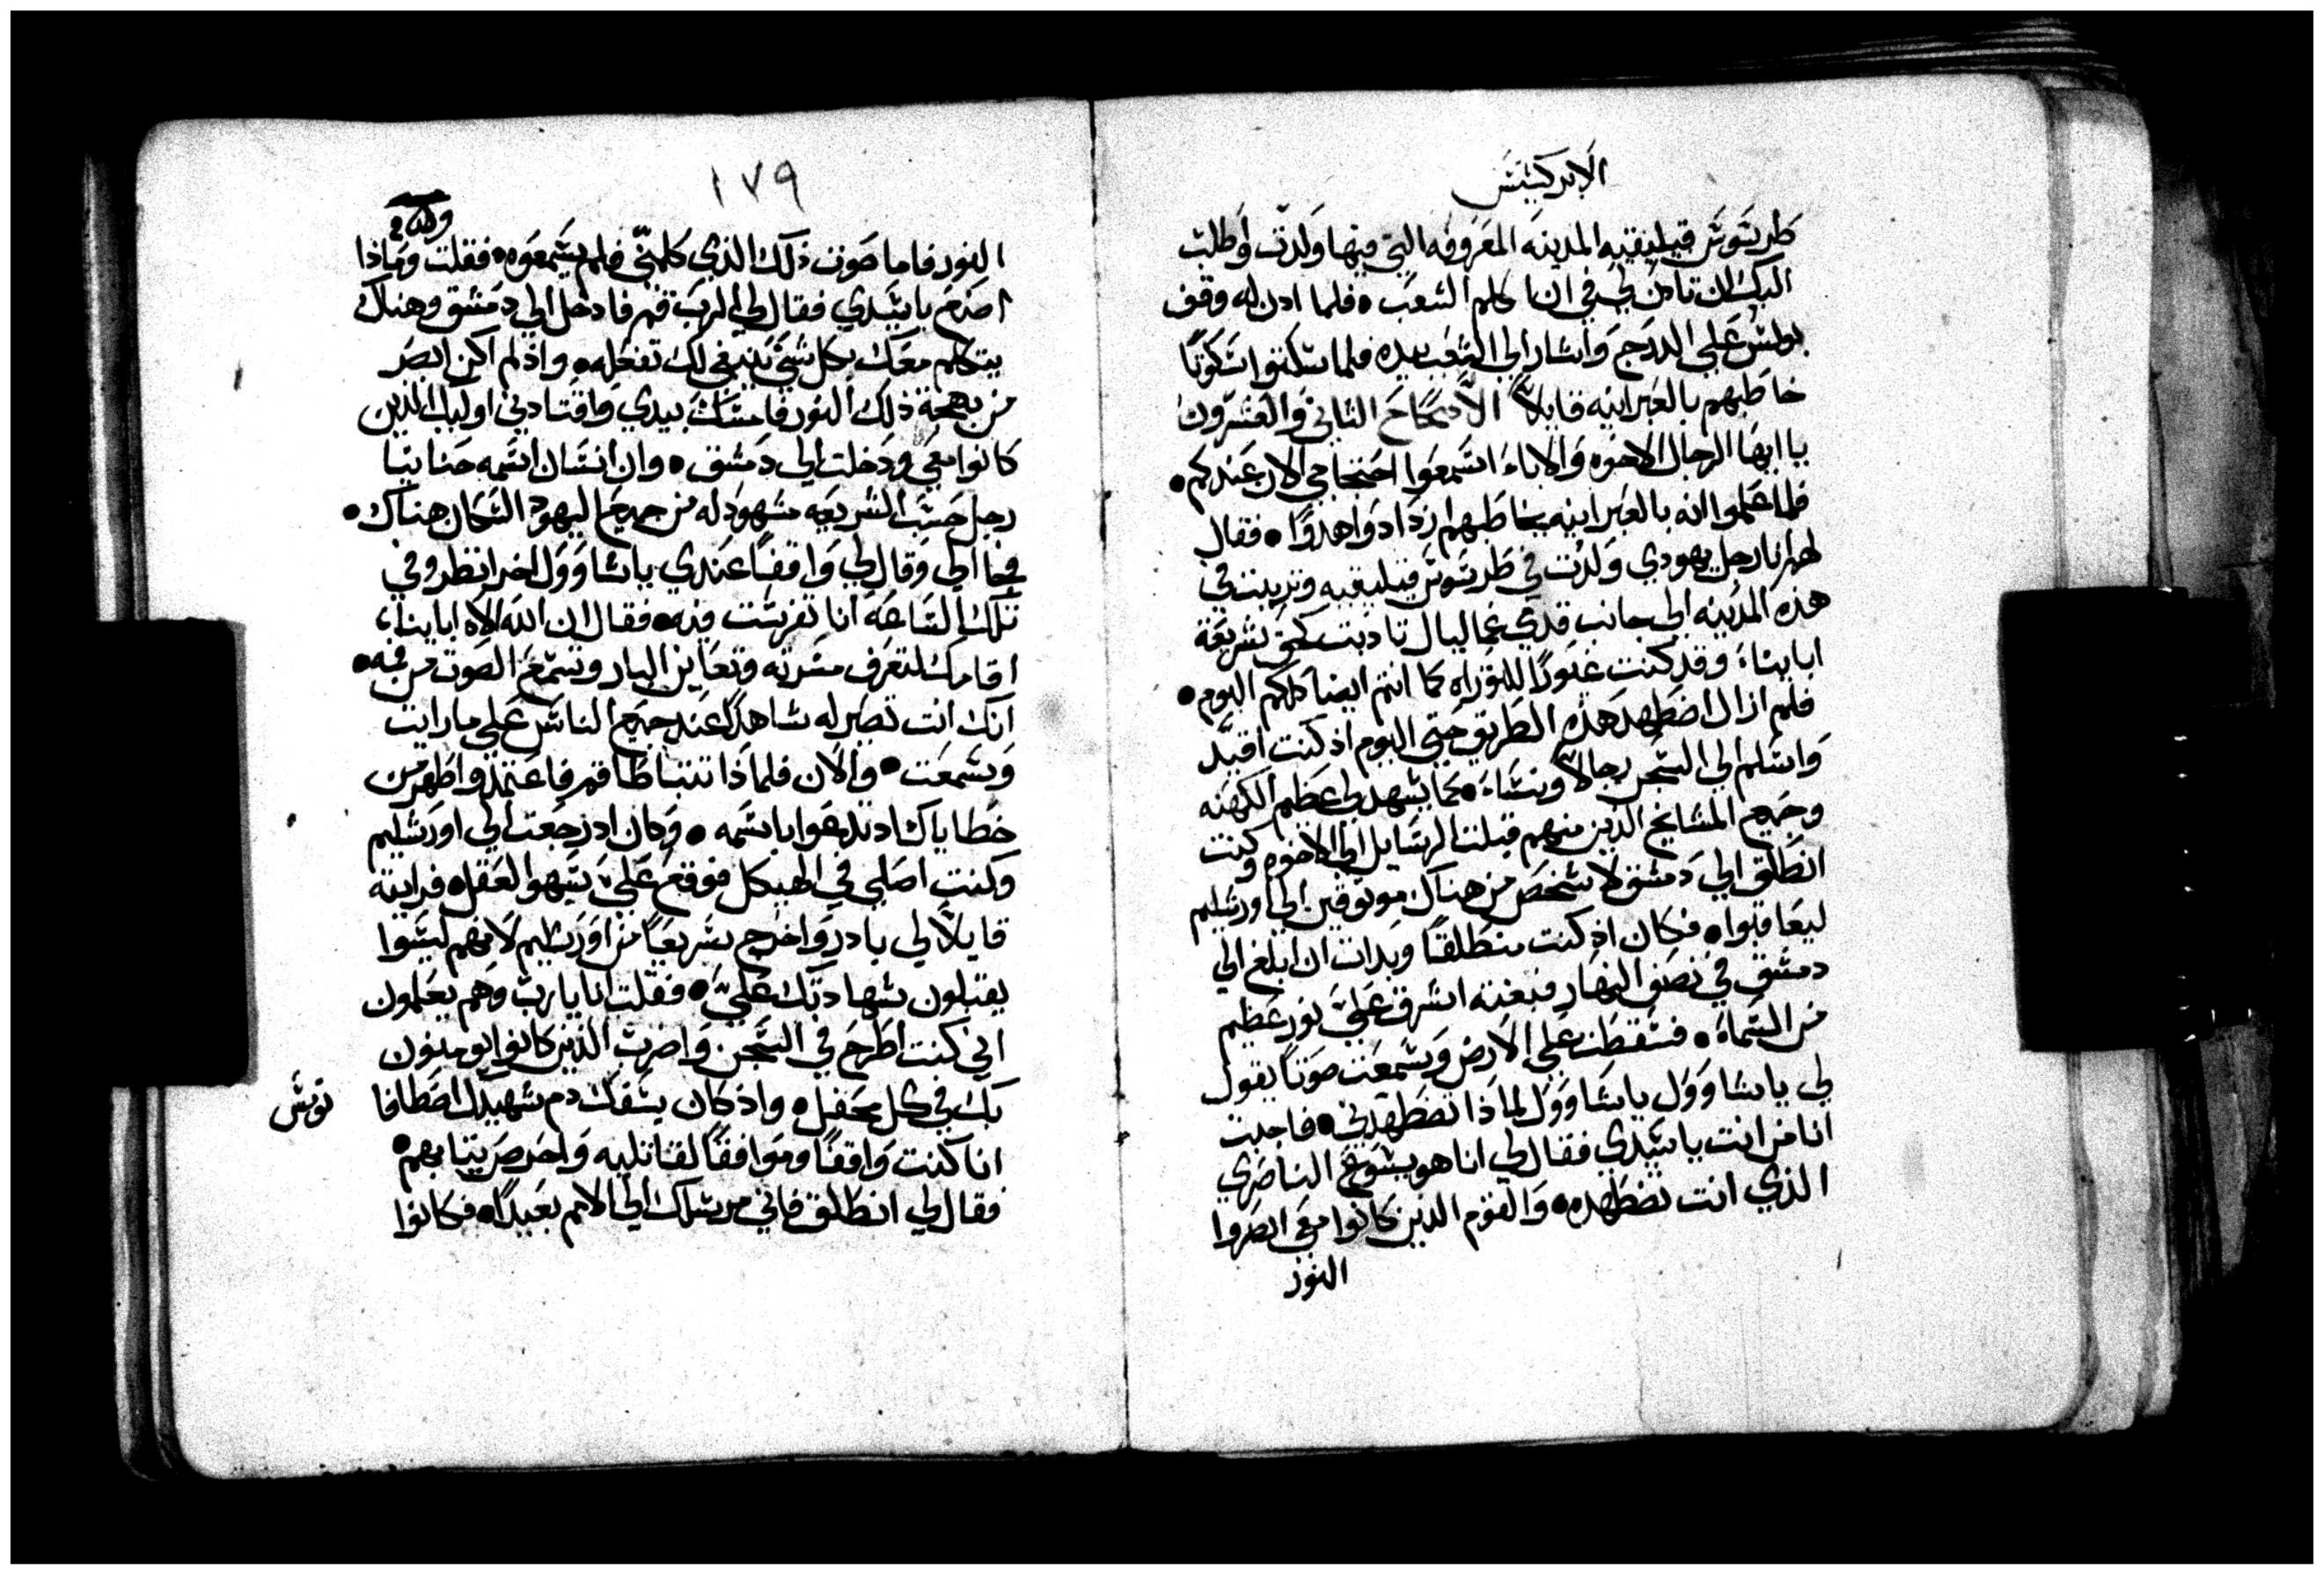 الابركسيس
طرسوس قيليقيه المدينه المعروفه التي فيها ولدت واطلب
اليك الان تادن لي في ان اكلم الشعب • فلما ادن له وقف
بولس علي الدرج واشار الي الشعب بيده فلما سكتوا سكوتا
خاطبهم بالعبرانيه قايلاً الاصحاح الثاني والعشرون
يا ايها الرجال الاخوه والاباء اسمعوا احتجاجي الان عندكم •
فلما علموا انه بالعبرانيه يخاطبهم ازدادوا هدوًا • فقال
لهم انا رجل يهودي ولدت في طرسوس قيليقيه وتربيت في
هذه المدينه الي جانب قدمي غماليال تادبت بحق شريعة
ابايناء وقد كنت غيورًا للتوراه كما انتم ايضا كلكم اليوم •
فلم ازال اضطهد هذه الطريق حتي اليوم اذ كنت اقيّد
واسلم الي السجن رجالاً ونساء • كما يشهد لي عظيم الكهنه
وجميع المشايخ الذين منهم قبلت الرسايل الي الاخوه وكنت
انطلق الي دمشق لاشخص من هناك موثوقين الي اورشليم
ليعاقبوا • فكان اذ كنت منطلقًا وبدات ان ابلغ الي
دمشق في نصف النهار فبغته اشرق عليّ نور عظيم
من السماء • فسقطت علي الارض وسمعت صوتًا يقول
لي ياشاوول ياشاوول لماذا تضطهدني • فاجبت
انا من انت ياسيدي فقال لي انا هو يسوع الناصري
الذي انت تضطهده • والقوم الذين كانوا معي ابصروا
النور
١٧٩
النور فاما صوت ذلك الذي كلمنّي فلم يسمعوه • فقلت وماذا
اصنع ياسيدي فقال لي الرب قم فادخل الي دمشق وهناك
يتكلم معك بكل شي ينبغي لك تفعله • واذ لم اكن ابصر
من بهجة ذلك النور فامسك بيدي واقتادني اوليك الذين
كانوا معي ودخلت الي دمشق • وان انسان اسمه حنانيا
رجل حسب الشريعه مشهود له من جميع اليهود السكان هناك •
فجا الي وقال لي واقفًا عندي ياشاوول اخر انظر وفي
تلك الساعه انا تفرست فيه • فقال ان الله الاه اباينا
اقامك لتعرف مسرته وتعاين البار وتسمع الصوت من فمه •
انك انت تصير له شاهدًا عند جميع الناس علي ما رايت
وسمعت • والان فلماذا تتباطا قم فاعتمد واطهر من
خطاياك اد تدعوا باسمه • وكان اد رجعت الي اورشليم
وكنت اصلي في الهيكل فوقع عليّ سهو العقل • فرايته
قايلاً لي بادر واخرج سريعًا من اورشليم لانهم ليسوا
يقبلون شهادتك عليّ • فقلت انا يارب وهم يعلمون
اني كنت اطرح في السجن واضرب الذين كانوا يومنون
بك في كل محفل • واذ كان يسفك دم شهيدك اصطافا نوس
انا كنت واقفًا وموافقًا لقاتليه واحرص ثيابهم •
فقال لي انطلق فاني مرسلك الي الامم بعيدًا • فكانوا